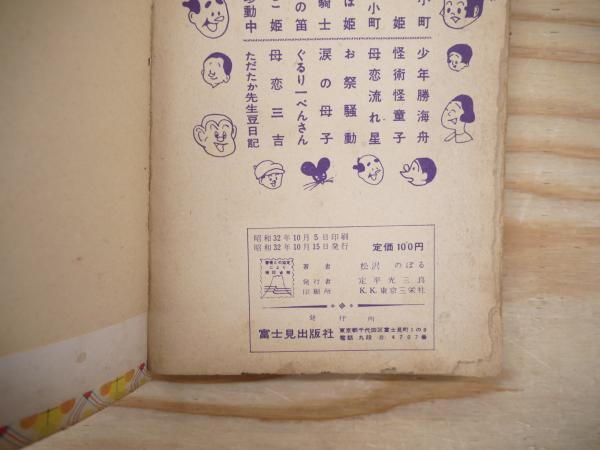 小町
姫
小町
ぼ姫
騎士
の笛
こ姫
移動中
少年勝海舟
怪術怪童子
母恋流れ星
お祭騒動
涙の母子
ぐるり一ぺんさん
母恋三吉
ただたか先生豆日記
昭和32年10月5日印刷
昭和32年10月15日発行
定価100円
著者 松沢のぼる
発行者 定平光三良
印刷所 K.K.東京三栄社
発行所
富士見出版社
東京都千代田区富士見町1の8
電話 九段 (33) 4707番